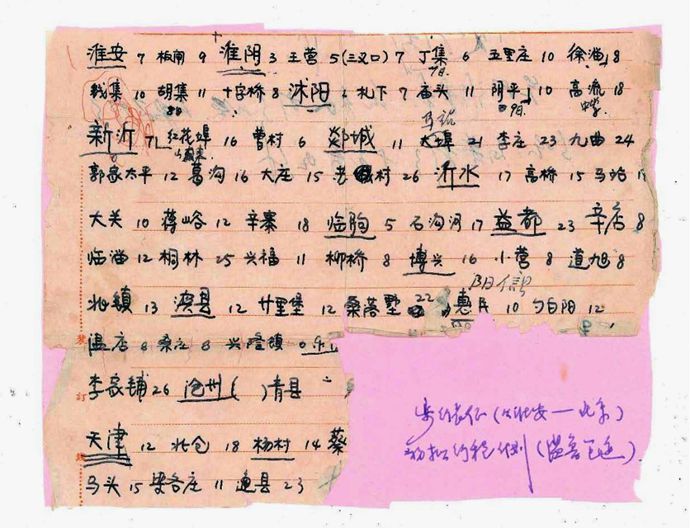 淮安 7 板闸 9 淮阴 3 王营 5 (三叉口) 7 丁集 6 五里庄 10 徐溜 8
7日
钱集 10 胡集 11 十字桥 8 沭阳 2 扎下 7 西头 11 阴平 10 高流 18
8日 9日 中学
新沂 7 红花埠 16 曹村 6 郯城 11 大埠 21 李庄 23 九曲 24
山东
郭家太平 12 葛沟 16 大庄 15 村 26 沂水 17 高桥 15 马站
大关 10 蒋峪 12 辛寨 18 临朐 5 石沟河 17 益都 23 辛店 8
临淄 12 桐林 25 兴福 11 柳桥 8 博兴 16 小营 8 道旭 8
阳信
北镇 13 滨县 12 廿里堡 12 桑落墅 22 惠民 10 白阳 12
温店 6 桑庄 8 兴隆镇
李家铺 26 沧州 ( ) 青县
天津 12 北仓 18 杨村 14 蔡
马头 15 梁各庄 11 通县 23
步行长征 (从淮安—北京)
初拟行程计划